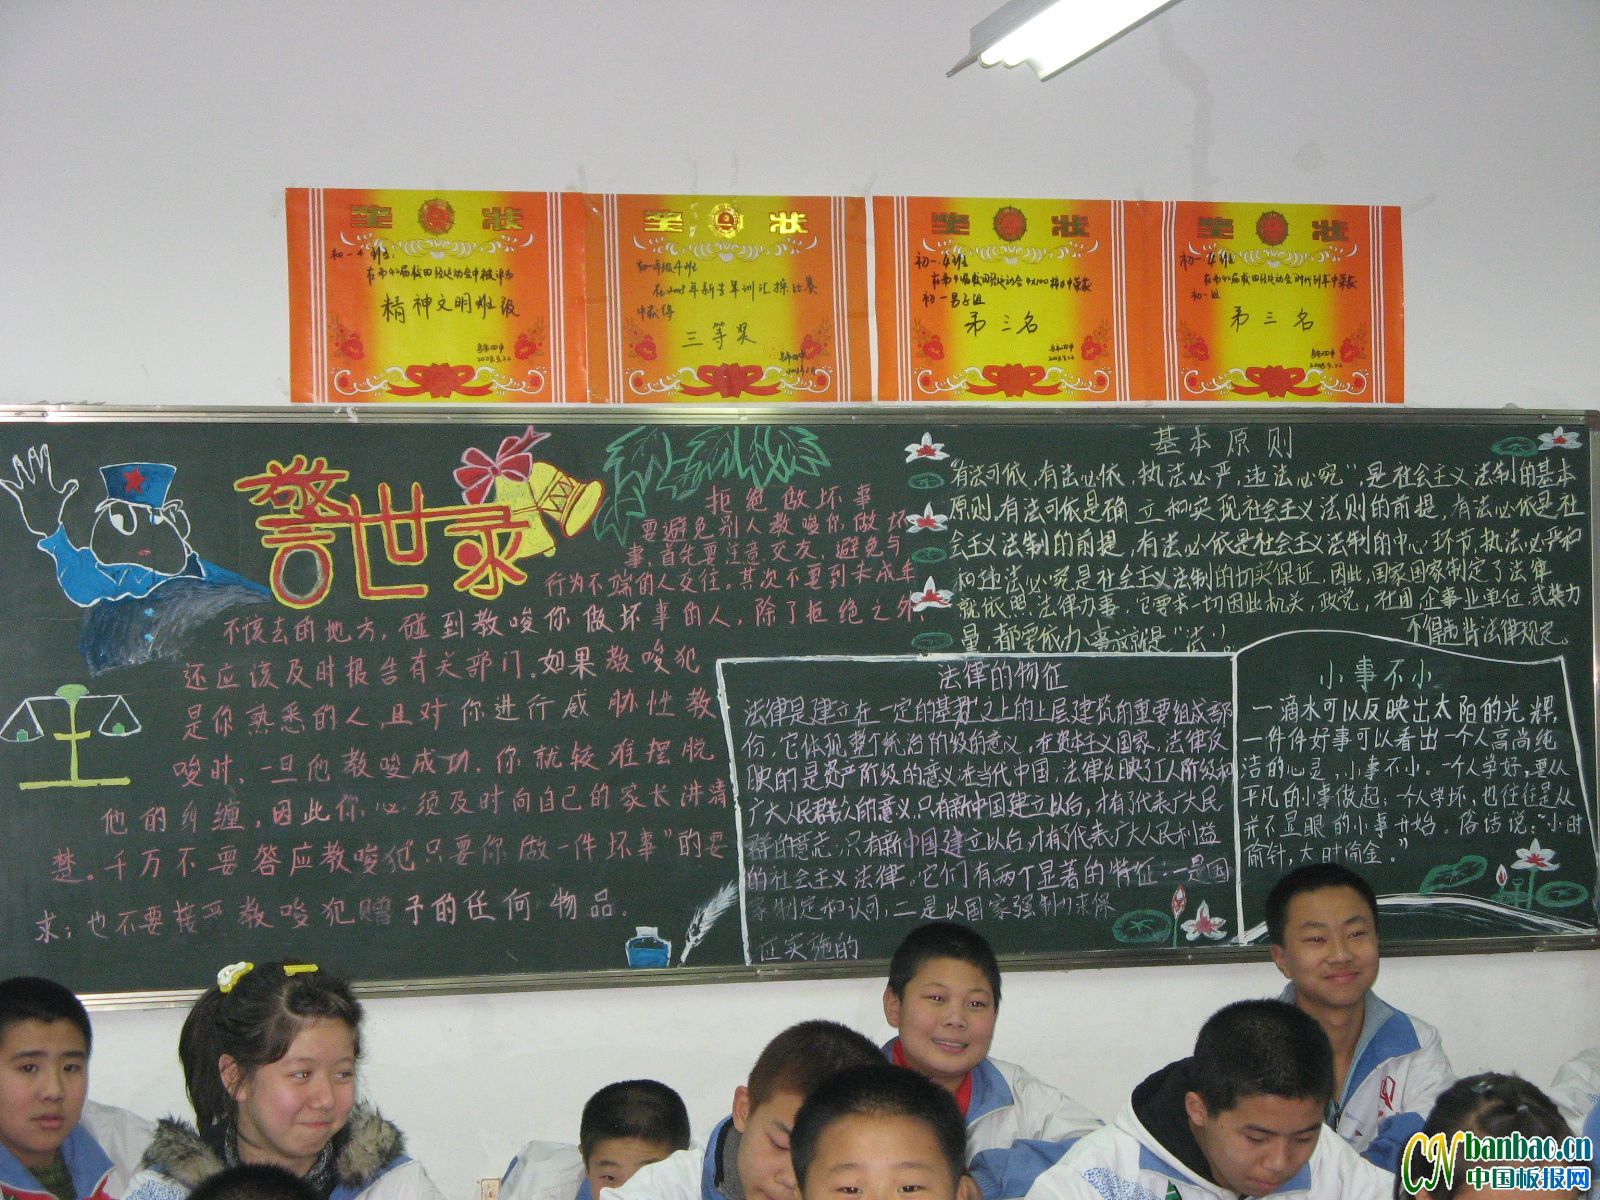 奖状
初一4班:
在第42届校田径运动会中被评为
精神文明班级
2008.5.22
奖状
初一年级4班
在2007年新生军训汇操比赛
中获得
三等奖
奖状
初一4班
初一男子组
第三名
2008.5.22
奖状
初一4班
初一组
第三名
2008.5.22
警世录
拒绝做坏事
要避免别人教唆你做坏
事,首先要注意交友,避免与
行为不端的人交往。其次不要到未成年
不该去的地方,碰到教唆你做坏事的人,除了拒绝之外,
还应该及时报告有关部门。如果教唆犯
是你熟悉的人,且对你进行威胁性教
唆时,一旦他教唆成功,你就较难摆脱
他的纠缠,因此你必须及时向自己的家长讲清
楚。千万不要答应教唆犯"只要你做一件坏事"的要
求;也不要接受教唆犯赠予的任何物品。
基本原则
"有法可依,有法必依,执法必严,违法必究"是社会主义法制的基本
原则。有法可依是确立和实现社会主义法则的前提,有法必依是社
会主义法制的前提,有法必依是社会主义法制的中心环节,执法必严和
和违法必究是社会主义法制的切实保证,因此,国家国家制定了法律
就依照法律办事,它要求一切因此机关,政党,社团,企事业单位,武装力
量,都要依力事
不得违背法律规定。
法律的物征
法律是建立在一定的基础之上的上层建筑的重要组成部
份,它体现整个统治阶级的意义,在资本主义国家,法律反
映的是资产阶级的意义在当代中国,法律反映了工人阶级和
广大人民群众的意义,只有新中国建立以后,才有了代表广大民
群的意志,只有新中国建立以后,才有了代表广大人民利益
的社会主义法律。它们有两个显著的特征:一是国
家制定和认可,二是以国家强制力来保
证实施的
小事不小
一滴水可以反映出太阳的光辉,
一件件好事可以看出一个人高尚纯
洁的心灵,小事不小。一个人学好,要从
平凡的小事做起;一个人学坏,也往往是从
并不显眼的小事开始。俗话说:"小时
偷针,大时偷金。"
CN banbao.cn
中国板报网